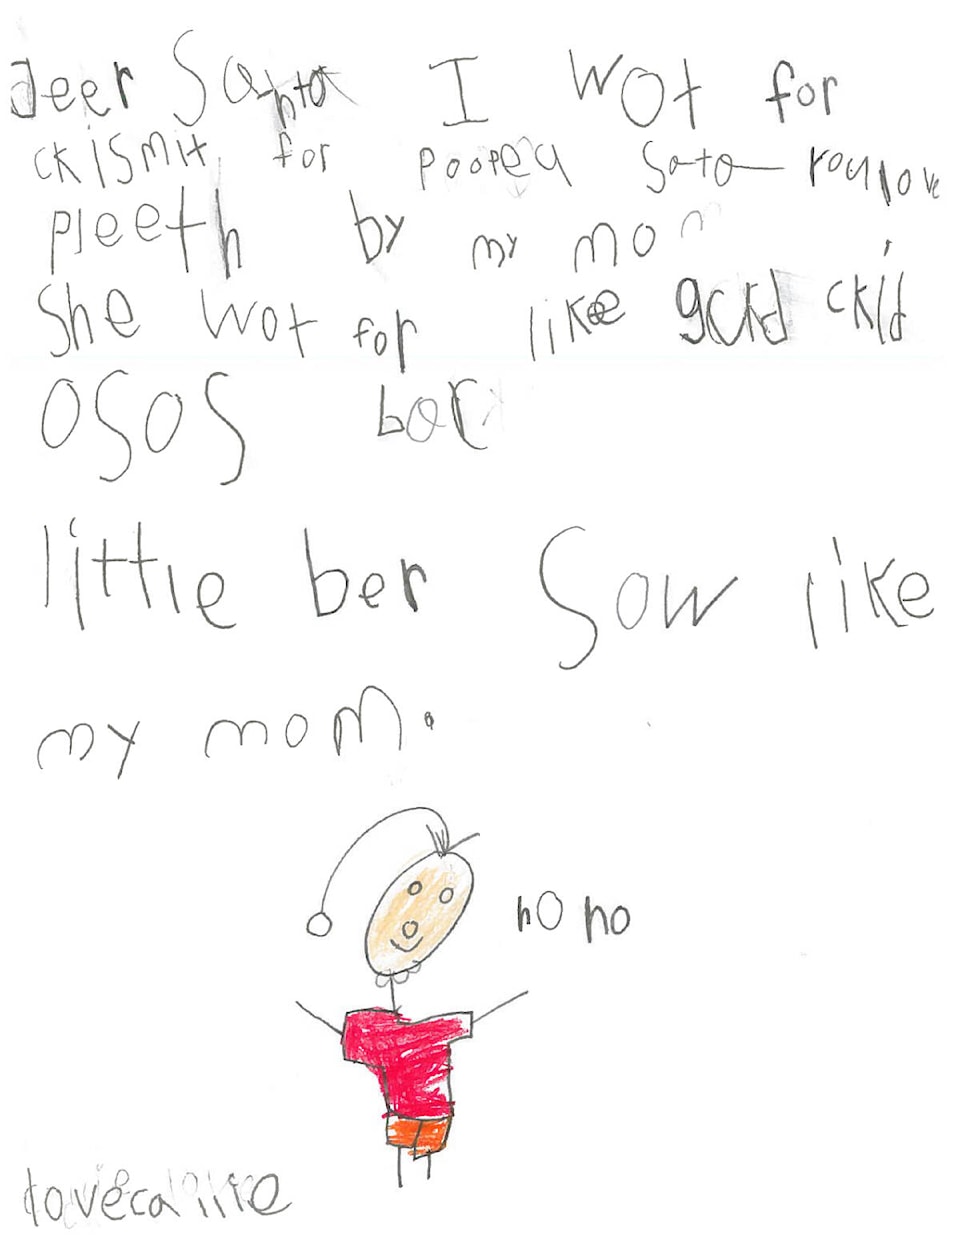 deer Santa I wot for
ckismit for poopea Sata you love
pleeth by my mom
She wot for like gckd ckid
OSOS bor
little ber Sow like
my mom.
ho ho
love callie